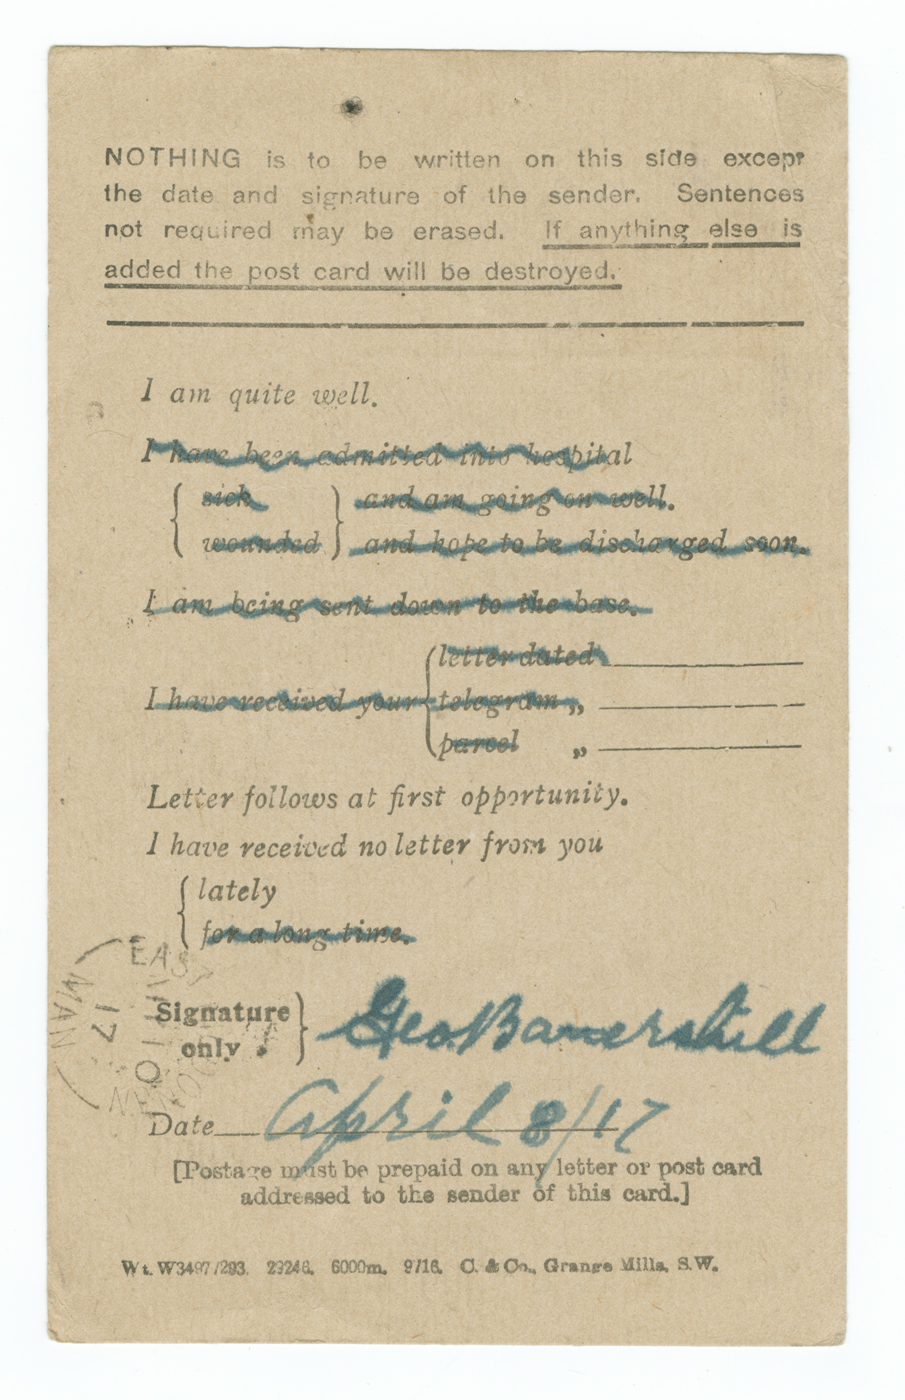 NOTHING is to be written on this side except
the date and signature of the sender. Sentences
not required may be erased. If anything else is
added the post card will be destroyed.
I am quite well.
I have been admitted into hospital
sick and am going on well.
wounded and hope to be discharged soon.
I am being sent down to the base.
letter dated
I have received your telegram „
parcel „
Letter follows at first opportunity.
I have received no letter from you
lately
for a long time.
Signature
only. Geo.
Date April 8/17
[Postage must be prepaid on any letter or post card
addressed to the sender of this card.]
Wt. W3497/293. 29246. 6000m. 9/16. C. & Co., Grange Mills, S.W.
EAS
MAN
17